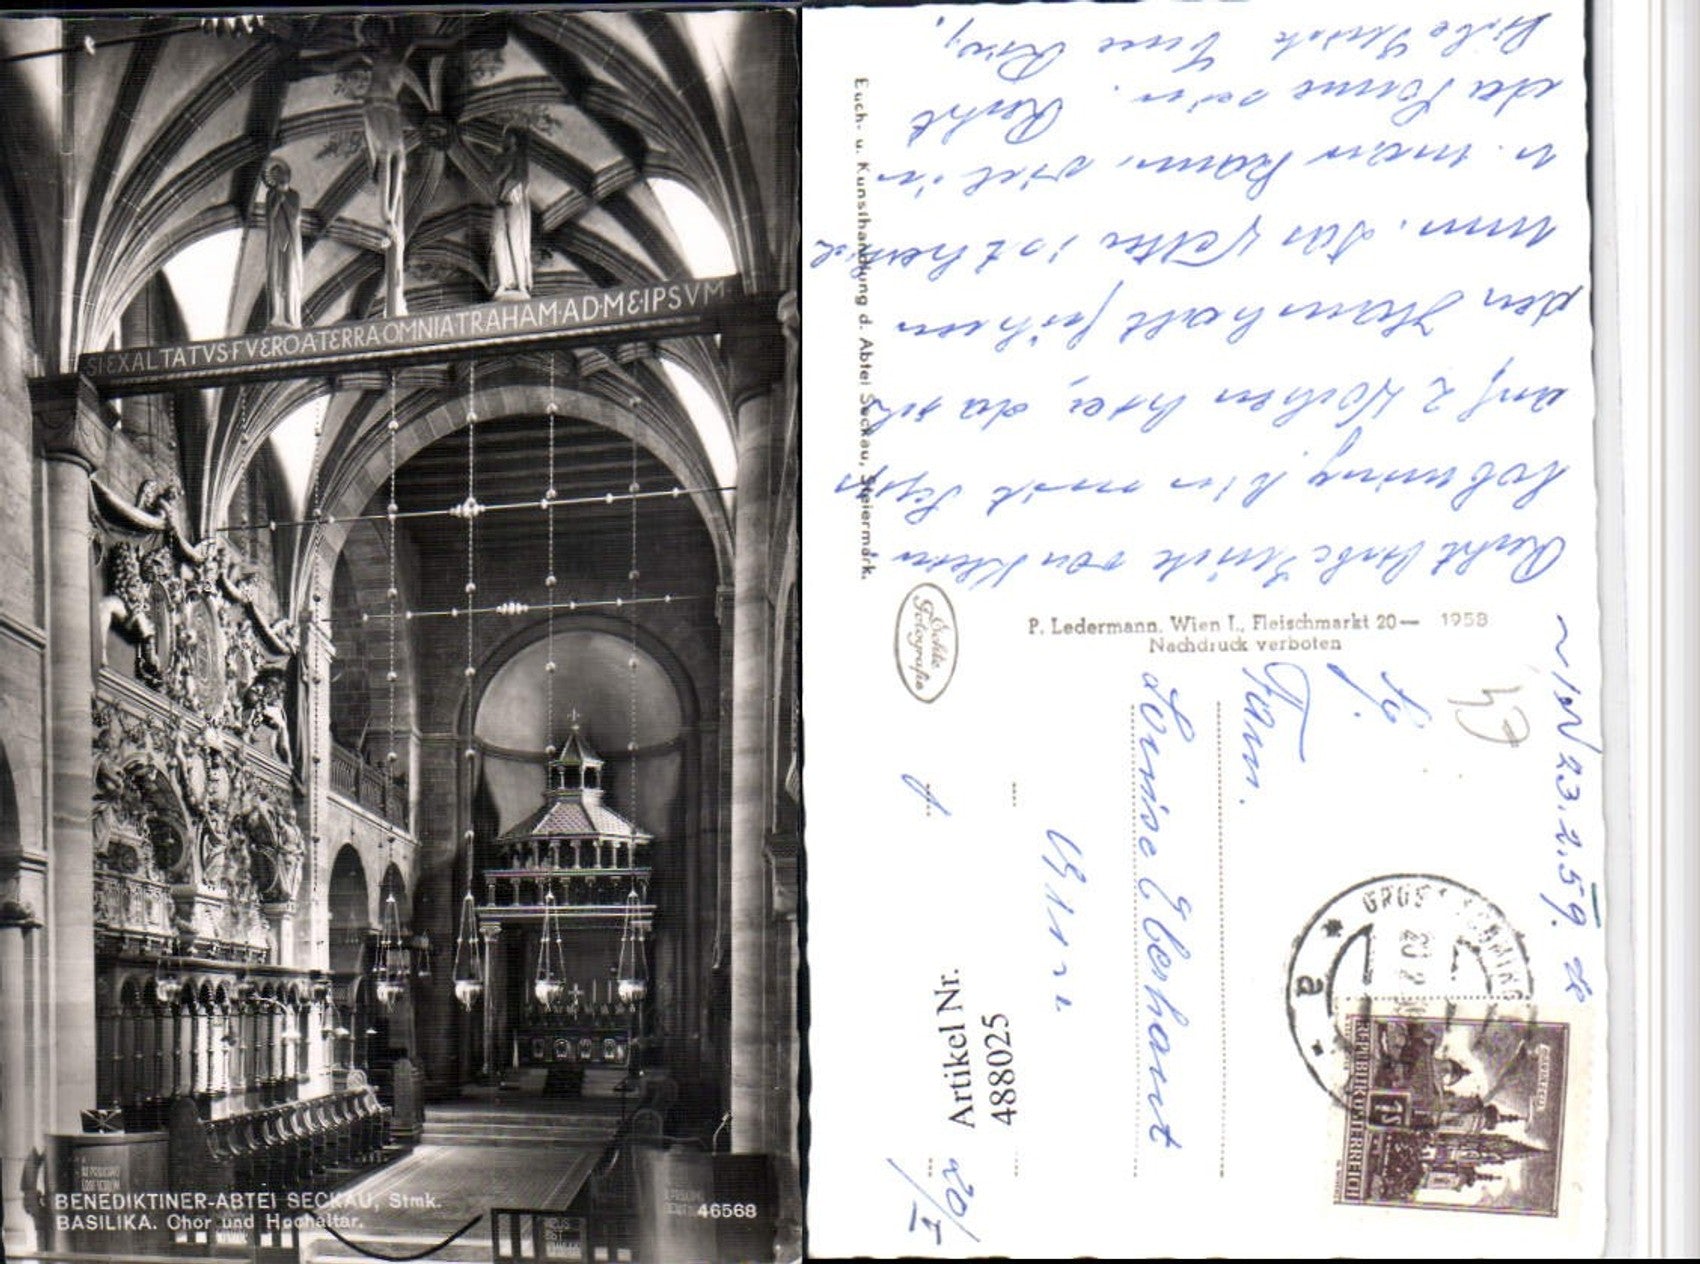 SI·EXALTATVS·FVERO·A·TERRA·OMNIA·TRAHAM·AD·ME·IPSVM
BENEDIKTINER-ABTEI SECKAU, Stmk.
BASILIKA. Chor und Hochaltar.
46568
Buch- u. Kunsthandlung d. Abtei Seckau, Steiermark.
Echte
Fotografie
P. Ledermann, Wien I., Fleischmarkt 20— 1958
Nachdruck verboten
23.2.59.
Recht liebe Grüße von Klein
bin mit
auf 2 Wochen hier, da ich
den Haushalt führen
muss. Das Wetter ist herrlich
u. man kann viel in
der Sonne sein. Recht
liebe Grüße Eure
47
Fam.
Louise Eberhart
Wien
20/
I
Artikel Nr.
488025
a
REPUBLIK ÖSTERREICH